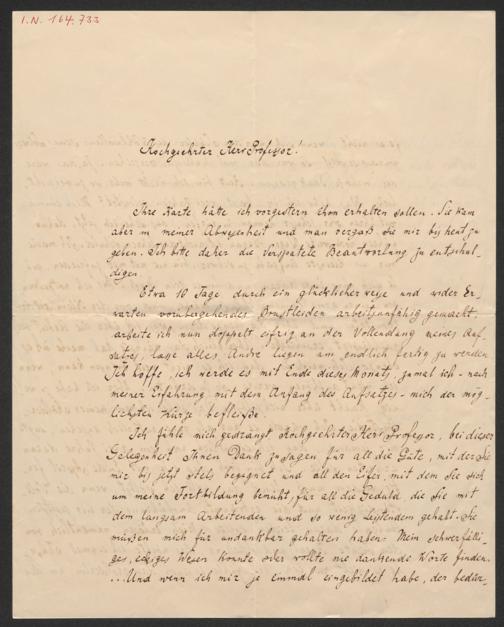 I.N. 164.733
Hochgeehrter Herr Professor!
Ihre Karte hätte ich vorgestern schon erhalten sollen. Sie kam
aber in meiner Abwesenheit und man vergaß sie mir bis heut zu
geben. Ich bitte daher die verspätete Beantwortung zu entschul-
digen.
Etwa 10 Tage durch ein glücklicherweise und wider Er-
warten vorübergehendes Brustleiden arbeitsunfähig gemacht,
arbeite ich nun doppelt eifrig an der Vollendung meines Auf-
satzes, lasse alles Andre liegen um endlich fertig zu werden.
Ich hoffe, ich werde es mit Ende dieses Monats, zumal ich - nach
meiner Erfahrung mit dem Anfang des Aufsatzes - mich der mög-
lichsten Kürze befleiße.
Ich fühle mich gedrängt Hochgeehrter Herr Professor, bei dieser
Gelegenheit Ihnen Dank zu sagen für all die Güte, mit der Sie
mir bis jetzt stets begegnet und all den Eifer, mit dem Sie sich
um meine Fortbildung bemüht, für all die Geduld die Sie mit
dem langsam Arbeitenden und so wenig Leistendem gehabt. Sie
müßen mich für undankbar gehalten haben. Mein schwerfälli-
ges, eckiges Wesen konnte oder wollte nie dankende Worte finden.
...Und wenn ich mir je einmal eingebildet habe, der bedür-